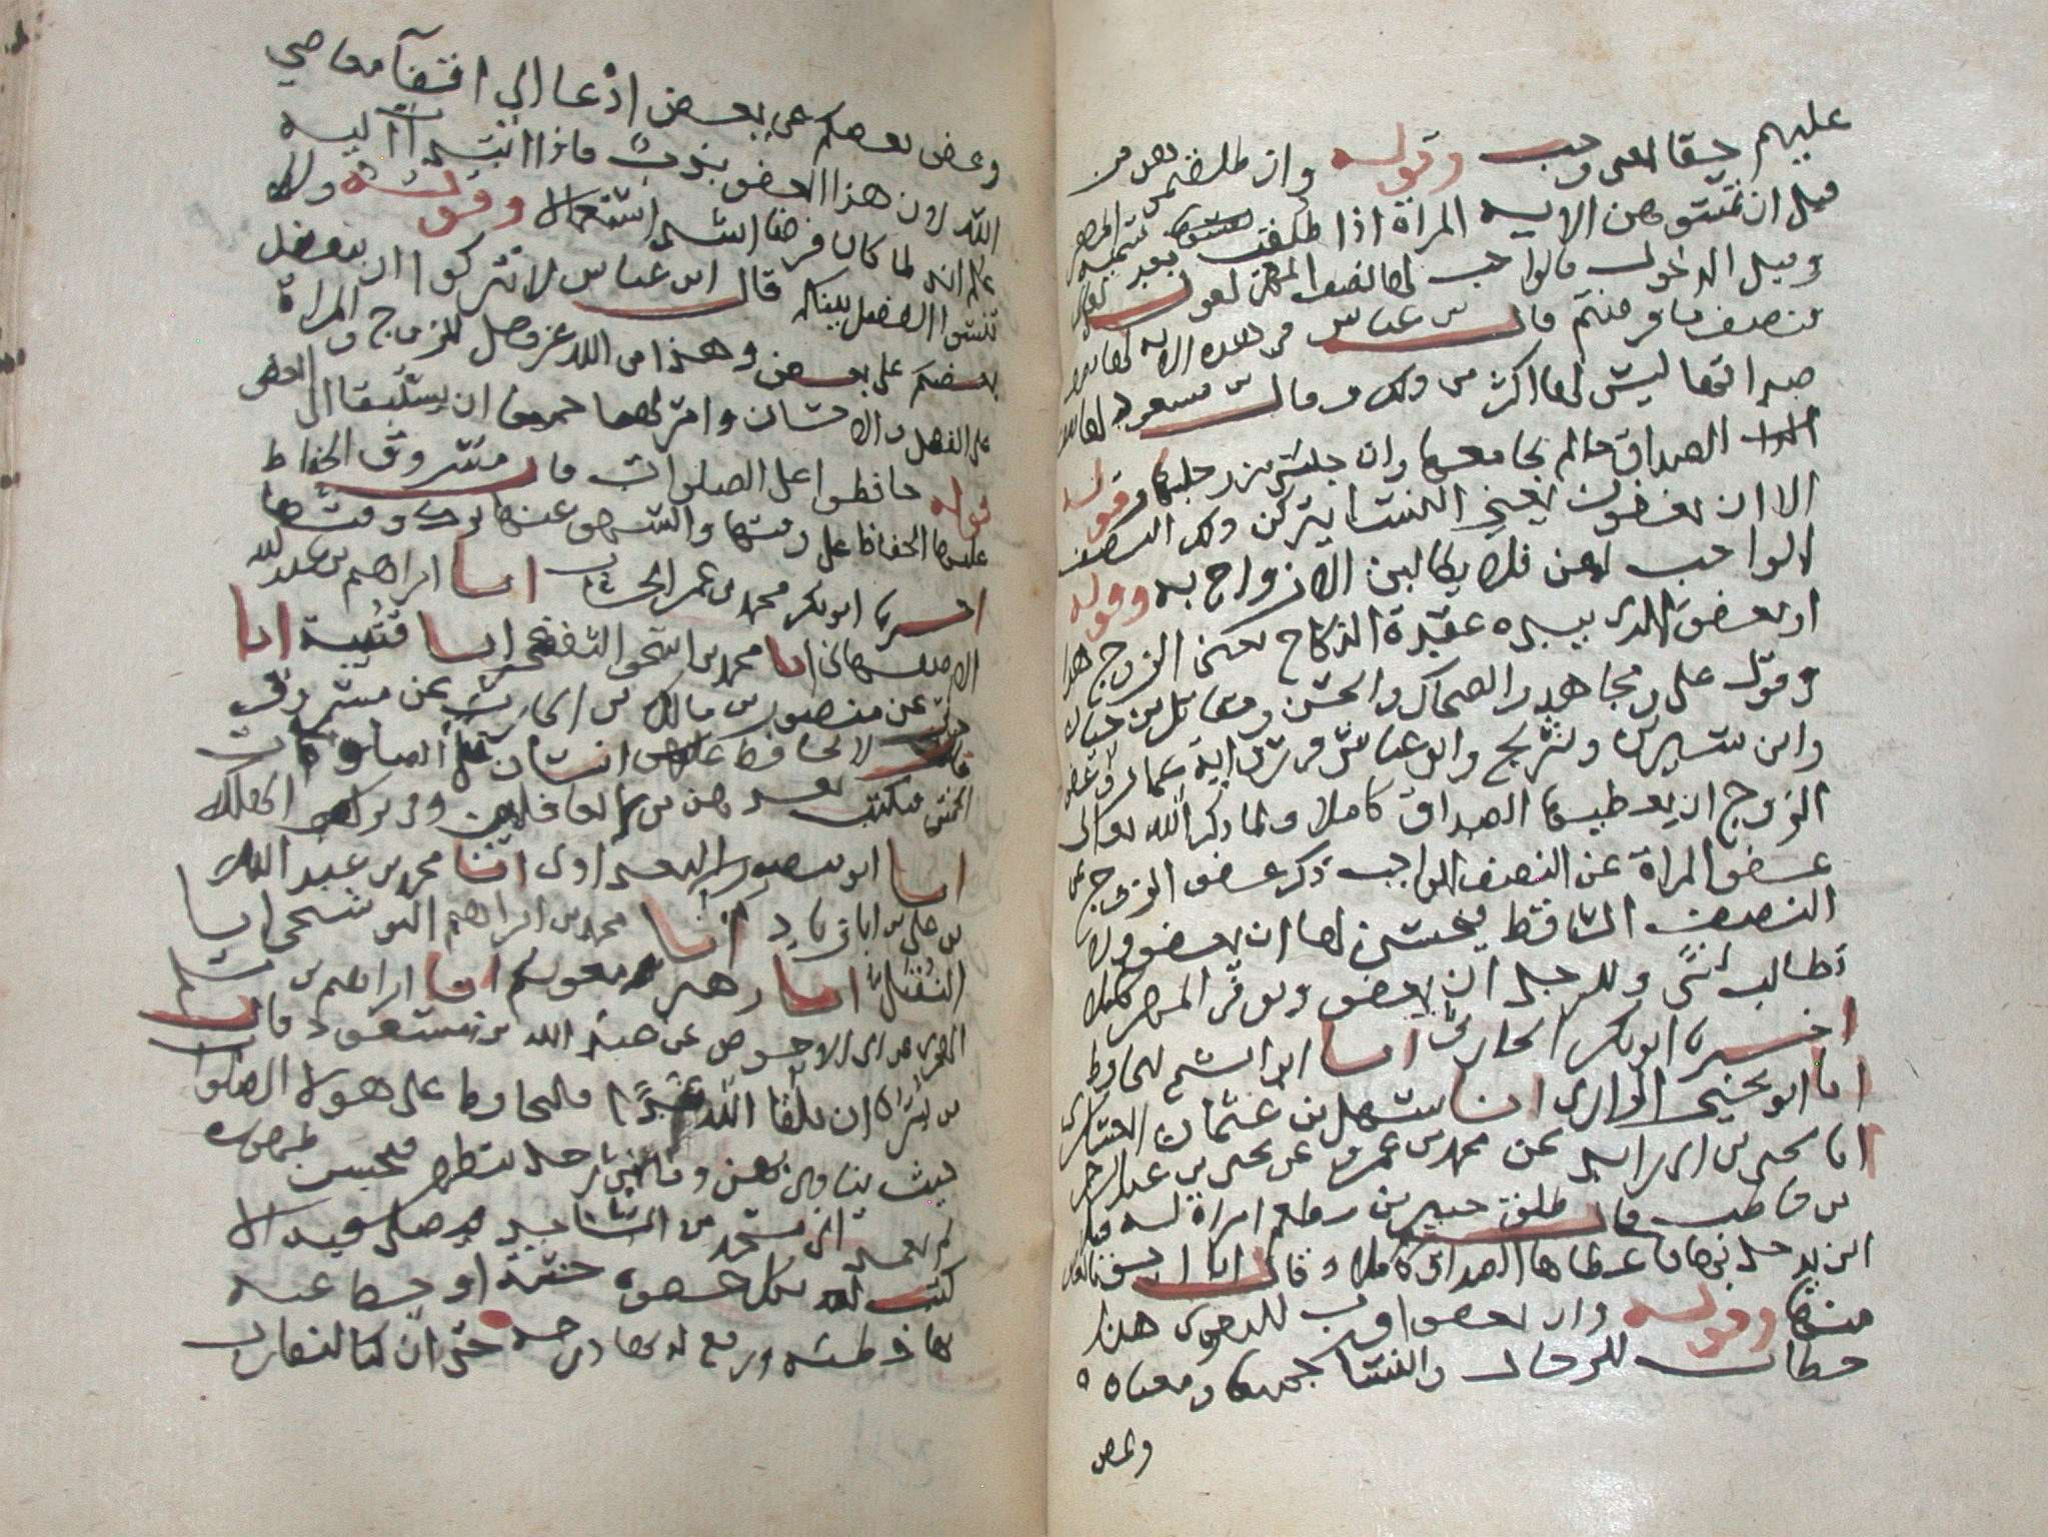 عليهم حقا اى وجب وقوله وان طلقتموهن من
قبل ان تمسوهن الايه المراة اذا طلقت بعد تسميه المهر
وقبل الدخول فالواجب لها نصف المهر لقوله تعالى
فنصف ما فرضتم قال بن عباس فى هذه الايه لها نصف
صداقها ليس لها اكثر من ذلك وقال بن مسعود لها نصف
الصداق مالم يجامعها وان جلس بين رجليها وقوله
الا ان يعفون يعنى النسا يتركن ذلك النصف
الواجب لهن فلا يطالبن الازواج به وقوله
او يعفو الذى بيده عقدة النكاح يعنى الزوج هذا
وقول على ومجاهد والضحاك والحسن ومقاتل بن حيان
وابن سيرين وشريح وابن عباس فى رواية عمار وعفو
الزوج ان يعطيها الصداق كاملا ولما ذكر الله تعالى
عفو المراة عن النصف الواجب ذكر عفو الزوج عن
النصف الساقط فيحسن لها ان تعفو ولا
تطالب بشى وللرجل ان يعفو ويوفر المهر كاملا
اخبرنا ابو بكر الحارثى انبا ابو الشيخ الحافظ
انا ابو يحيى الرازى انا سهل بن عثمان العسكرى
انا يحيى بن ابى زائده عن محمد بن عمرو عن يحيى بن عبد الرحمن
بن حاطب قال طلق جبير بن مطعم امراة له قبل
ان يدخل بها فاعطاها الصداق كاملا وقال انا احق بالعفو
منها وقوله وان تعفوا اقرب للتقوى هذا
خطاب للرجال والنسا جميعا ومعناه
وعفو
وعفو بعضكم عن بعض ادعا الى اتقآ معاصى
الله لان هذا العفو ندب فاذا انتدب اليه
علم انه لما كان فرضا اشد استعمالا وقوله ولا
تنسوا الفضل بينكم قال ابن عباس لا تتركوا ان يتفضل
بعضكم على بعض وهذا من الله عز وجل للزوج والمراة
على الفضل والاحسان وامر لهما جميعا ان يستبقا الى العفو
قوله حافظوا على الصلوات قال مسروق الحفاظ
عليها الحفاظ على وقتها والسهو عنها ترك وقتها
اخبرنا ابو بكر محمد بن عمر الخشاب انبا ابراهيم بن عبد الله
الاصفهانى انبا محمد بن اسحق الثقفى انبا قتيبة انا
عن منصور بن مالك بن الحارث عن مسروق
قال لا يحافظ انسان على الصلوات
الخمس فيكتب بعدهن من الغافلين وفى تركهن الهلكه
انبا ابو منصور البغدادى انبا محمد بن عبد الله
بن على بن زياد انبا محمد بن ابراهيم البوشنجى انبا
النفيلى انبا زهير بن معويه انبا ابراهيم بن مسلم
الهجرى عن ابى الاحوص عن عبد الله بن مسعود قال
من سره ان يلقا الله غدا فليحافظ على هولا الصلوات
حيث ينادى بهن وما من رجل يتطهر فيحسن طهوره
ثم يعمد الى مسجد من المساجد فيصلى فيه الا
كتب له بكل خطوه حسنة او حط عنه
بها خطيئه ورفع له بها درجه حتى ان كنا لنقارب